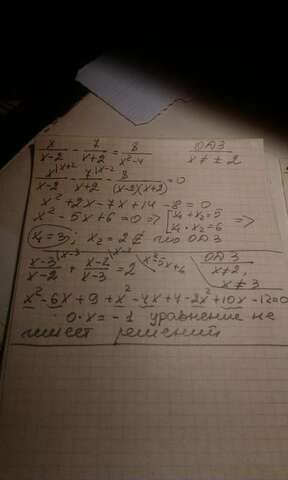 x/(x-2) - 7/(x+2) = 8/(x²-4) ОДЗ
x ≠ ± 2
x|x+2/(x-2) - 7|x-2/(x+2) - 8/((x-2)(x+2)) = 0
x² + 2x - 7x + 14 - 8 = 0
x² - 5x + 6 = 0 => [x₁ + x₂ = 5 =>
x₁ · x₂ = 6
x₁ = 3; x₂ = 2 ∉ ОДЗ
x-3|x-3/(x-2) + x-2|x-2/(x-3) = 2|x²-5x+6 ОДЗ
x ≠ 2,
x ≠ 3
x² - 6x + 9 + x² - 4x + 4 - 2x² + 10x - 12 = 0
0 · x = - 1 уравнение не
имеет решений